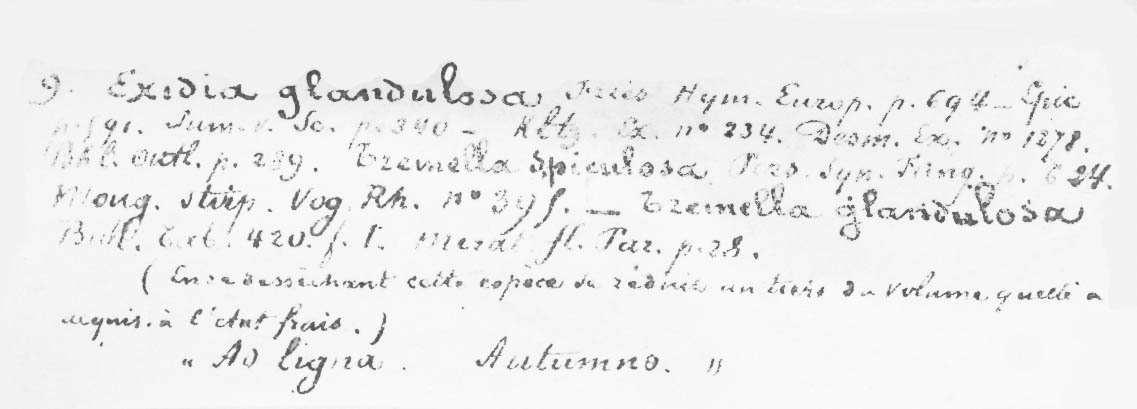 9. Exidia glandulosa Fries Hym. Europ. p. 694 — Epic
p. 591. Sum. v. Sc. p. 340 — Kltz. Ex. n° 234. Desm. Ex. n° 1278.
Bkl. Outl. p. 289. Tremella spiculosa Pers. Syn. Fung. p. 624.
Moug. stirp. Vog. Rh. n° 395. — Tremella glandulosa
Bull. Tab. 420. f. 1. Merat fl. Par. p. 28.
(En se desséchant cette espèce se réduit un tiers du volume quelle a
acquis à l'état frais.)
" Ad ligna. Autumno. "